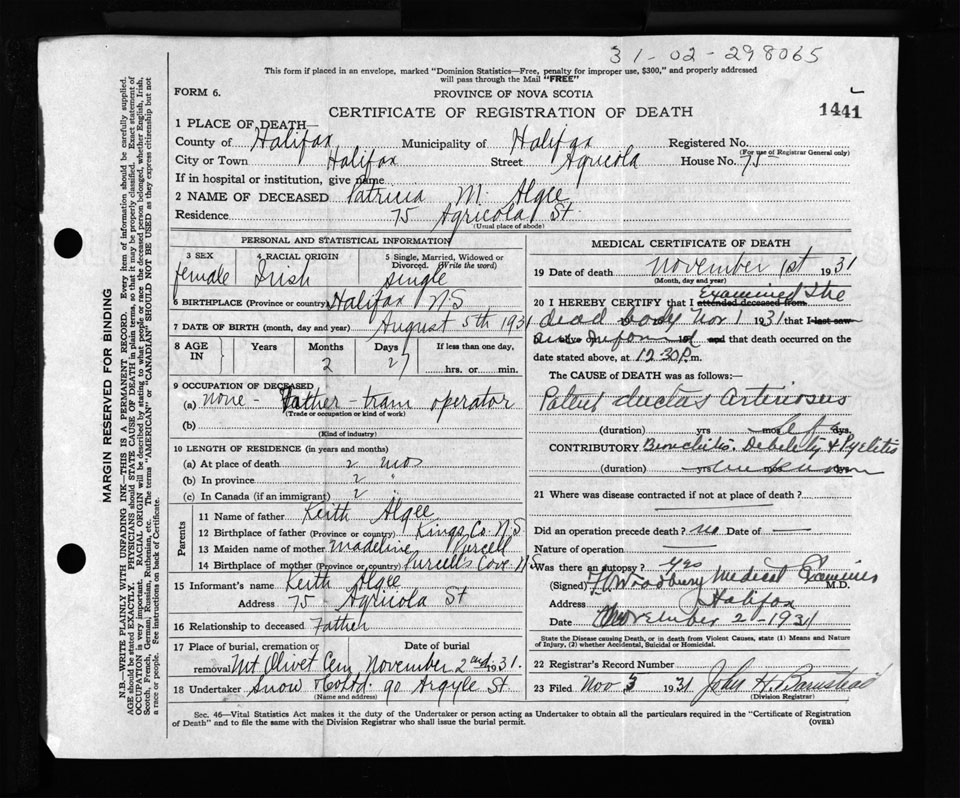 31-02-298065
This form if placed in an envelope, marked "Dominion Statistics—Free, penalty for improper use, $300," and properly addressed
will pass through the Mail "FREE"
FORM 6.
PROVINCE OF NOVA SCOTIA
CERTIFICATE OF REGISTRATION OF DEATH
1441
1 PLACE OF DEATH—
County of Halifax Municipality of Halifax Registered No.
(For use of Registrar General only)
City or Town Halifax Street Agricola House No. 75
If in hospital or institution, give name
2 NAME OF DECEASED Patricia M. Algee
Residence 75 Agricola St
(Usual place of abode)
PERSONAL AND STATISTICAL INFORMATION
3 SEX 4 RACIAL ORIGIN 5 Single, Married, Widowed or
Divorced. (Write the word)
female Irish single
6 BIRTHPLACE (Province or country) Halifax N.S
7 DATE OF BIRTH (month, day and year) August 5th 1931
8 AGE IN Years Months Days If less than one day,
2 27 hrs. or min.
9 OCCUPATION OF DECEASED
(a) none - Father - tram operator
(Trade or occupation or kind of work)
(b)
(Kind of industry)
10 LENGTH OF RESIDENCE (in years and months)
(a) At place of death 2 mos
(b) In province 2 "
(c) In Canada (if an immigrant) 2 "
Parents
11 Name of father Keith Algee
12 Birthplace of father (Province or country) Kings Co N.S
13 Maiden name of mother Madeline Purcell
14 Birthplace of mother (Province or country) Purcell's Cove N.S
15 Informant's name Keith Algee
Address 75 - Agricola St
16 Relationship to deceased Father
17 Place of burial, cremation or removal Mt Olivet Cem Date of burial November 2nd 1931.
18 Undertaker Snow & Co Ltd. 90 Argyle St.
(Name and address)
MEDICAL CERTIFICATE OF DEATH
19 Date of death November 1st 1931
(Month, day and year)
20 I HEREBY CERTIFY that I attended deceased from Examined the
dead body Nov 1 1931 that I last saw
and that death occurred on the
date stated above, at 12.30 P.m.
The CAUSE of DEATH was as follows:—
Patent ductus arteriosus
(duration) yrs mos dys.
CONTRIBUTORY Bronchitis. Debility & Pyelitis
(duration) yrs mos dys
21 Where was disease contracted if not at place of death?
Did an operation precede death? no Date of —
Nature of operation —
Was there an autopsy? yes
(Signed) Woodbury Medical Examiner M.D.
Address Halifax
Date November 2-1931
State the Disease causing Death, or in death from Violent Causes, state (1) Means and Nature
of Injury, (2) whether Accidental, Suicidal or Homicidal.
22 Registrar's Record Number
23 Filed Nov 3 1931 John H. Barnstead
(Division Registrar)
Sec. 46—Vital Statistics Act makes it the duty of the Undertaker or person acting as Undertaker to obtain all the particulars required in the "Certificate of Registration
of Death" and to file the same with the Division Registrar who shall issue the burial permit.
(OVER)
MARGIN RESERVED FOR BINDING
N.B.—WRITE PLAINLY WITH UNFADING INK—THIS IS A PERMANENT RECORD. Every item of information should be carefully supplied.
AGE should be stated EXACTLY. PHYSICIANS should STATE CAUSE OF DEATH in plain terms, so that it may be properly classified. Exact statement of
OCCUPATION is very important. RACIAL ORIGIN will be described by stating to what people or race the deceased person belonged, whether English, Irish,
Scotch, French, German, Russian, Ruthenian, etc. The terms "AMERICAN" or "CANADIAN" SHOULD NOT BE USED as they express citizenship but not
a race or people. See instructions on back of Certificate.